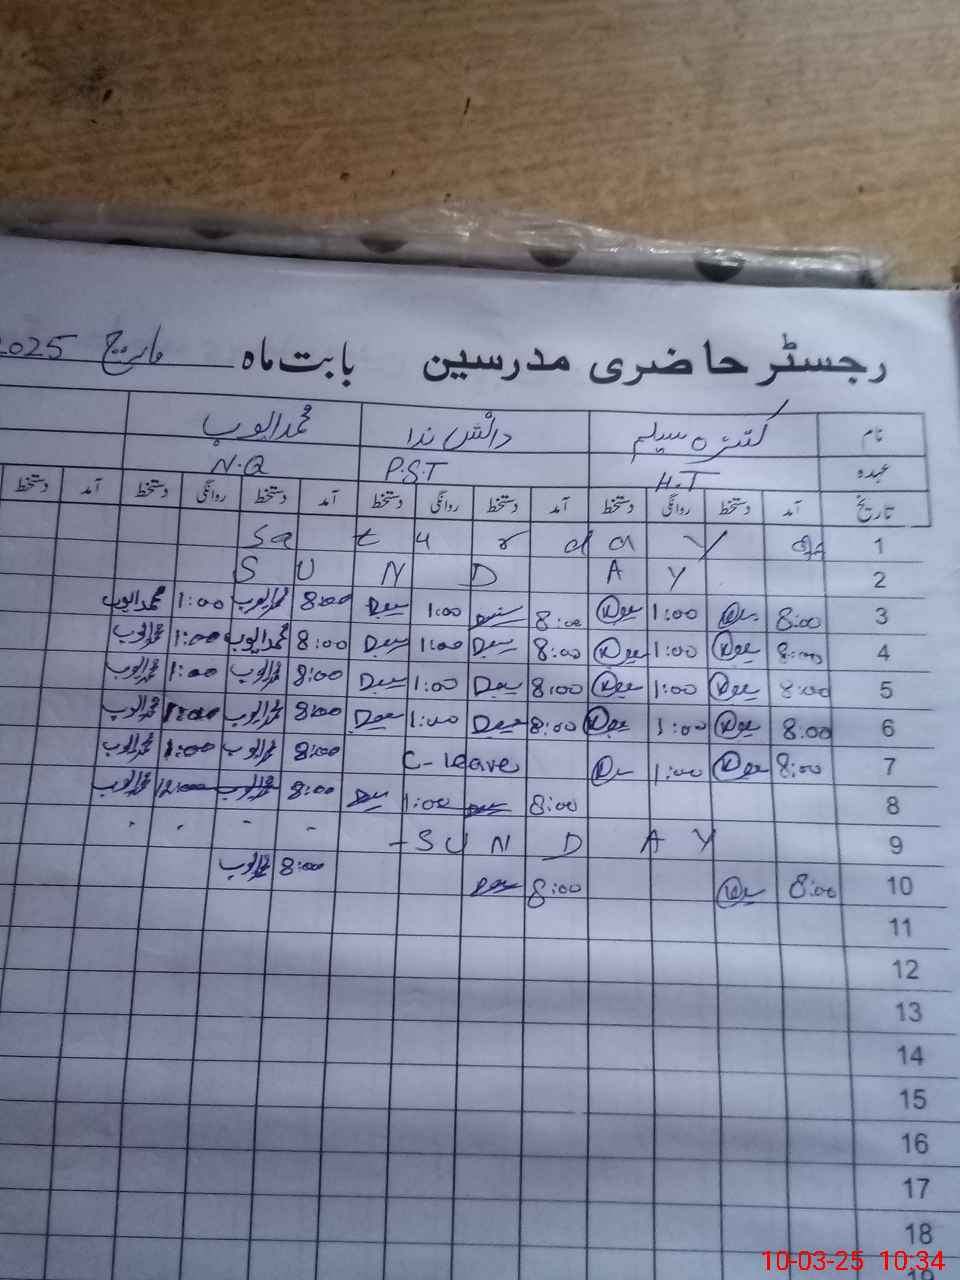 رجسٹر حاضری مدرسین بابت ماہ مارچ 2025
نام سلیم دانش ندا محمد ایوب
عہدہ H.T P.S.T N.Q
تاریخ آمد دستخط روانگی دستخط آمد دستخط روانگی دستخط آمد دستخط روانگی دستخط آمد دستخط
1 Saturday
2 SUNDAY
3 8:00 1:00 8:00 1:00 8:00 محمد ایوب 1:00 محمد ایوب
4 8:00 1:00 8:00 1:00 8:00 محمد ایوب 1:00 محمد ایوب
5 8:00 1:00 8:00 1:00 8:00 محمد ایوب 1:00 محمد ایوب
6 8:00 1:00 8:00 1:00 8:00 محمد ایوب 1:00 محمد ایوب
7 8:00 1:00 C-leave 8:00 محمد ایوب 1:00 محمد ایوب
8 8:00 1:00 8:00 محمد ایوب 12:00 محمد ایوب
9 SUNDAY
10 8:00 8:00 8:00 محمد ایوب
11
12
13
14
15
16
17
18
10-03-25 10:34